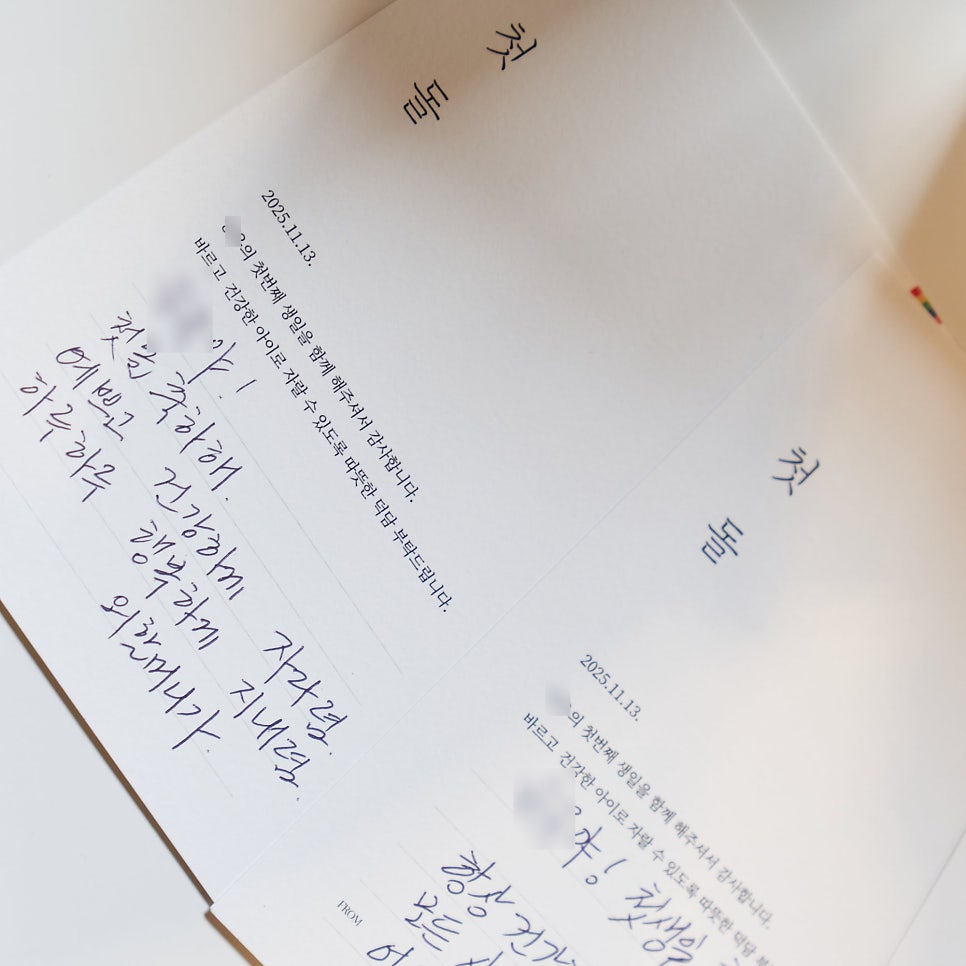 첫
돌
2025.11.13.
의 첫번째 생일을 함께 해주셔서 감사합니다.
바르고 건강한 아이로 자랄 수 있도록 따뜻한 덕담 부탁드립니다.
야!
첫돌 축하해.
예쁘고 건강하게 자라렴.
하루하루 행복하게 지내렴.
외할머니가.
첫
돌
2025.11.13.
의 첫번째 생일을 함께 해주셔서 감사합니다.
바르고 건강한 아이로 자랄 수 있도록 따뜻한 덕담
야! 첫생일
항상
모든
FROM